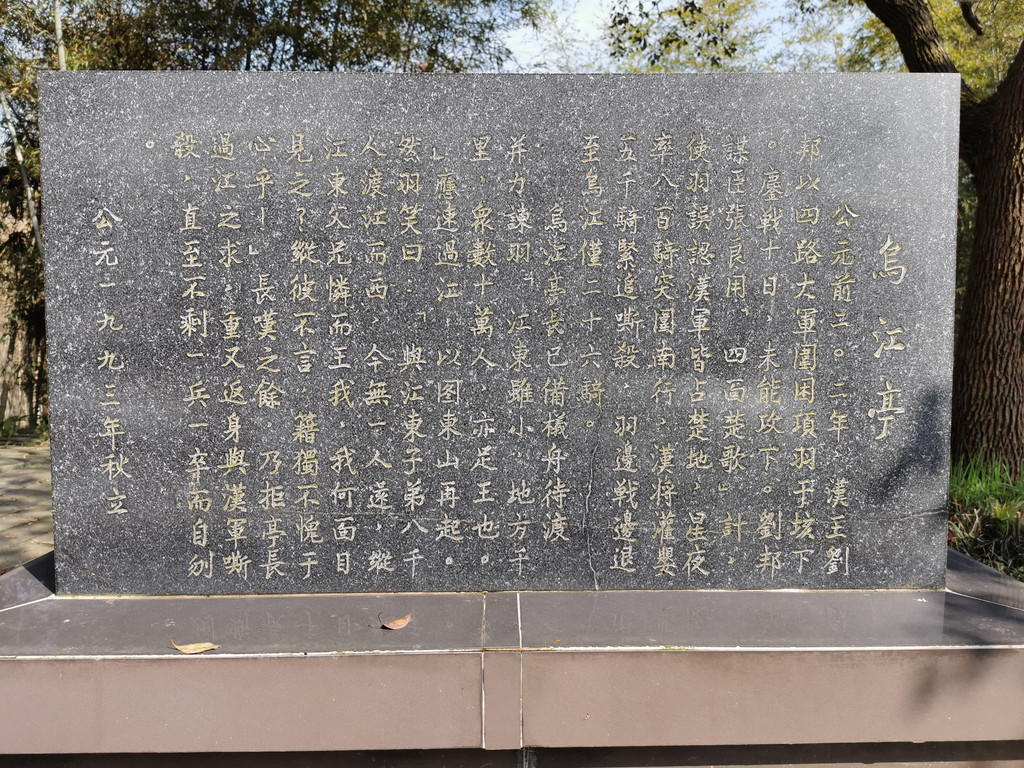 烏江亭
公元前二〇二年，漢王劉
邦以四路大軍圍困項羽于垓下
。鏖战十日，未能攻下。劉邦
謀臣張良用「四面楚歌」計，
使羽誤認漢軍皆占楚地，星夜
率八百騎突圍南行，漢將灌嬰
五千騎緊追嘶殺，羽邊戰邊退
至烏江僅二十六騎。
烏江亭長已備檥舟待渡
并力諫羽「江東雖小，地方千
里，衆數十萬人，亦足王也。
」應速過江，以图東山再起。
然羽笑曰：「與江東子弟八千
人渡江而西，今無一人还，縱
江東父兄憐而王我，我何面目
見之？縱彼不言，籍獨不愧于
心乎！」長嘆之餘，乃拒亭長
過江之求，重又返身與漢軍嘶
殺，直至不剩一兵一卒而自刎
。
公元一九九三年秋立